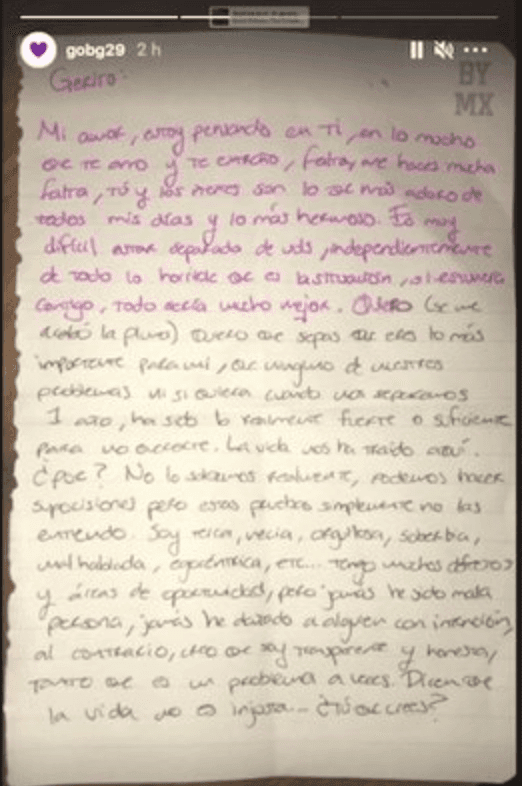 gobg29 2 h
BY
MX
Gerito:
Mi amor, estoy pensando en Ti, en lo mucho
que te amo y Te extraño, falta, me haces mucha
falta, Tú y los nenes son lo que más adoro de
todos mis días y lo más hermoso. Es muy
difícil estar separada de uds, independientemente
de todo lo horrible que es la situación, si estuviera
contigo, todo sería mucho mejor. Quiero (se me
acabó la pluma) Quiero que sepas que eres lo más
importante para mi, que ninguno de nuestros
problemas ni si quiera cuando nos separamos
1 año, ha sido lo realmente fuerte o suficiente
para no
La vida nos ha traido aquí.
¿Por q? No lo sabemos realmente, podemos hacer
suposiciones pero estas pruebas simplemente no las
entiendo. Soy terca, necia, orgullosa, soberbia,
mal hablada, egocéntrica, etc... Tengo muchos defectos
y áreas de oportunidad, pero jamás he sido mala
persona, jamás he dañado a alguien con intención,
al contrario, creo que soy transparente y honesta,
tanto que es un problema a veces. Dicen que
la vida no es injusta... ¿Tú que crees?